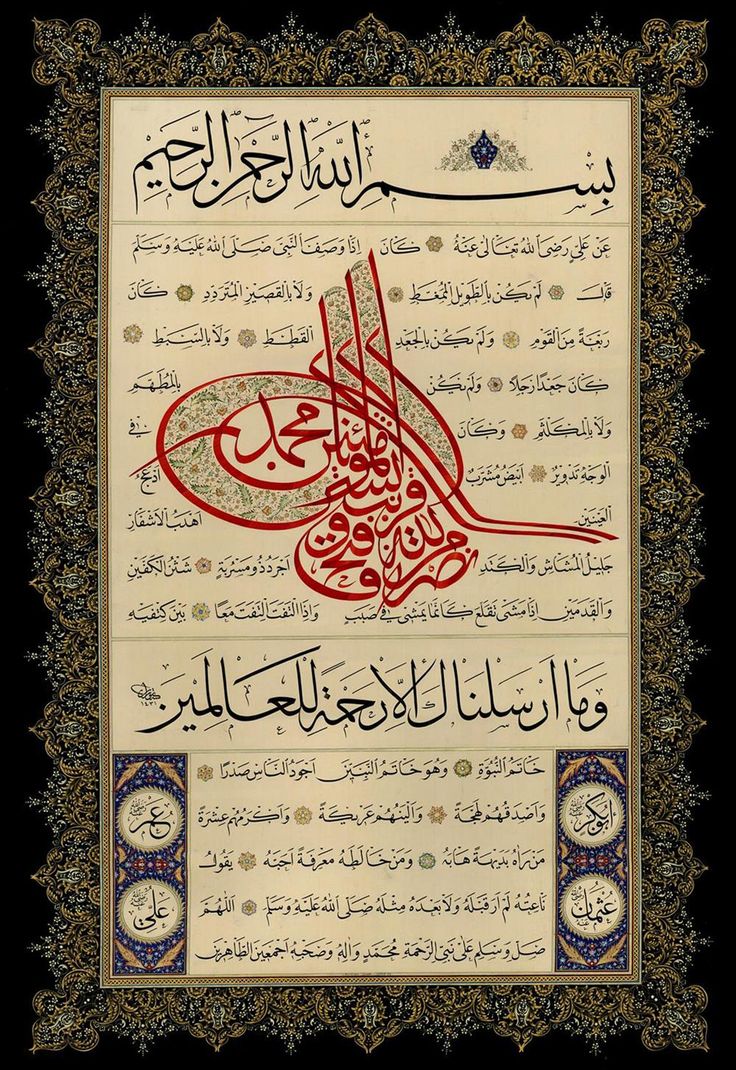 بِسْمِ اللهِ الرَّحْمٰنِ الرَّحِيمِ
عَنْ عَلِيٍّ رَضِيَ اللهُ تَعَالٰى عَنْهُ كَانَ اِذَا وَصَفَ النَّبِيَّ صَلَّى اللهُ عَلَيْهِ وَسَلَّمَ
قَالَ لَمْ يَكُنْ بِالطَّوِيلِ الْمُمَّغِطِ وَلَا بِالْقَصِيرِ الْمُتَرَدِّدِ كَانَ
رَبْعَةً مِنَ الْقَوْمِ وَلَمْ يَكُنْ بِالْجَعْدِ الْقَطَطِ وَلَا بِالسَّبِطِ
كَانَ جَعْدًا رَجِلًا وَلَمْ يَكُنْ بِالْمُطَهَّمِ
وَلَا بِالْمُكَلْثَمِ وَكَانَ فِي
الْوَجْهِ تَدْوِيرٌ اَبْيَضُ مُشْرَبٌ اَدْعَجُ
الْعَيْنَيْنِ اَهْدَبُ الْاَشْفَارِ
جَلِيلُ الْمُشَاشِ وَالْكَتَدِ اَجْرَدُ ذُو مَسْرُبَةٍ شَثْنُ الْكَفَّيْنِ
وَالْقَدَمَيْنِ اِذَا مَشٰى تَقَلَّعَ كَاَنَّمَا يَمْشِي فِي صَبَبٍ وَاِذَا الْتَفَتَ الْتَفَتَ مَعًا بَيْنَ كَتِفَيْهِ
نصر من الله وفتح قريب وبشر المؤمنين
محمد
وَمَا اَرْسَلْنَاكَ اِلَّا رَحْمَةً لِلْعَالَمِينَ
١٤٣١
خَاتَمُ النُّبُوَّةِ وَهُوَ خَاتَمُ النَّبِيِّينَ اَجْوَدُ النَّاسِ صَدْرًا
وَاَصْدَقُهُمْ لَهْجَةً وَاَلْيَنُهُمْ عَرِيكَةً وَاَكْرَمُهُمْ عِشْرَةً
مَنْ رَاٰهُ بَدِيهَةً هَابَهُ وَمَنْ خَالَطَهُ مَعْرِفَةً اَحَبَّهُ يَقُولُ
نَاعِتُهُ لَمْ اَرَ قَبْلَهُ وَلَا بَعْدَهُ مِثْلَهُ صَلَّى اللهُ عَلَيْهِ وَسَلَّمَ اَللّٰهُمَّ
صَلِّ وَسَلِّمْ عَلٰى نَبِيِّ الرَّحْمَةِ مُحَمَّدٍ وَاٰلِهِ وَصَحْبِهِ اَجْمَعِينَ الطَّاهِرِينَ
ابوبكر
عمر
عثمان
علي